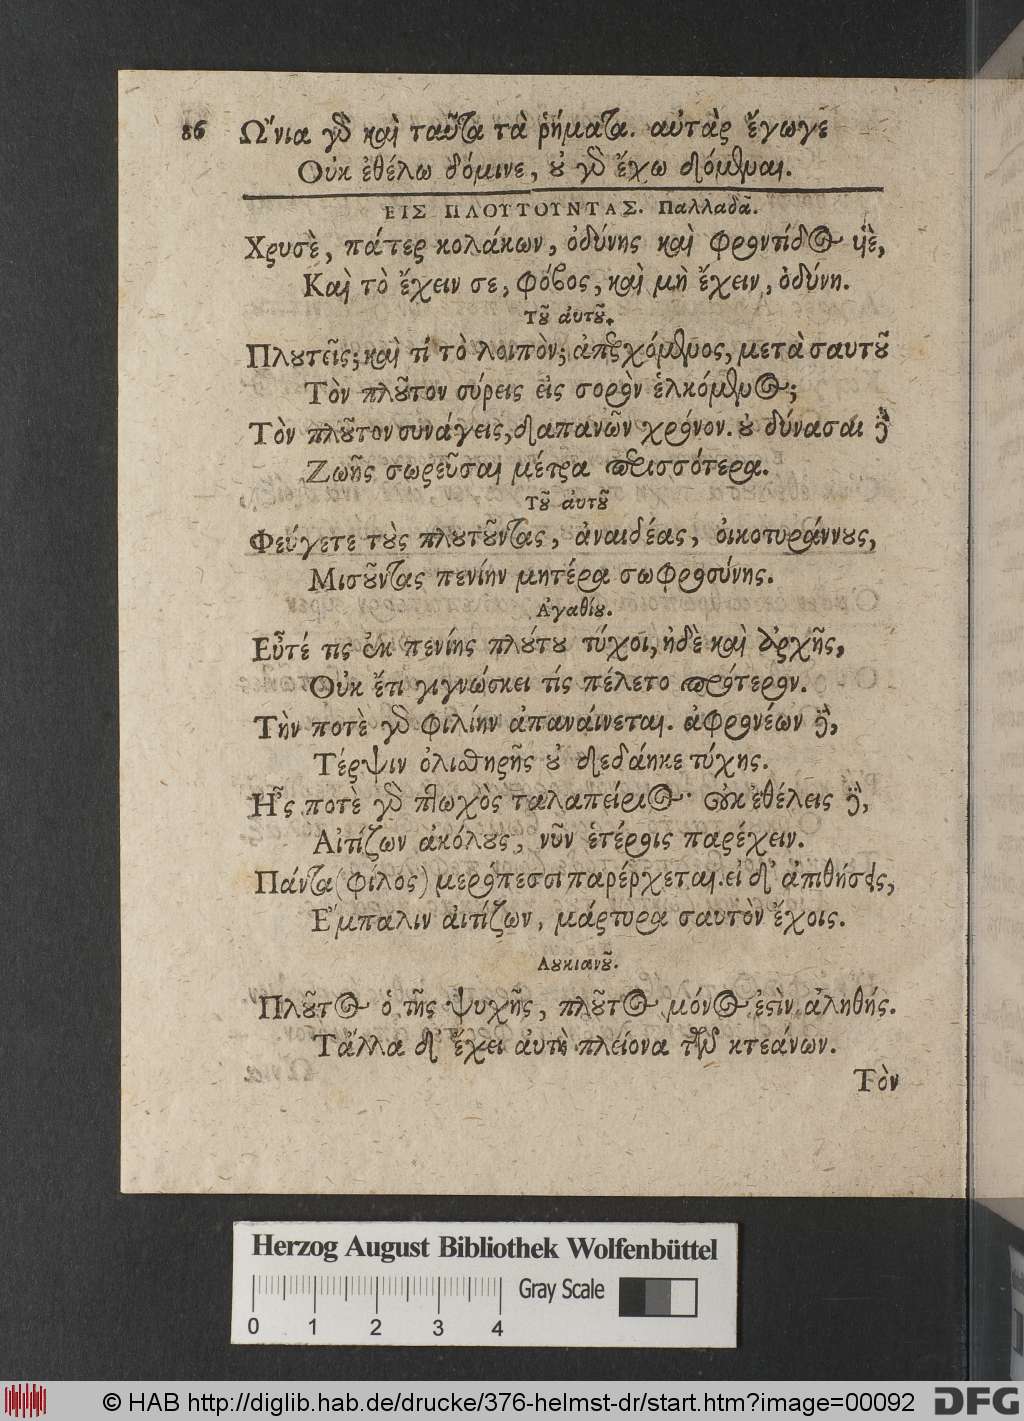 86 Ὤνια γὰρ καὶ ταῦτα τὰ ῥήματα. αὐτὰρ ἔγωγε
Οὐκ ἐθέλω δόμινε, οὐ γὰρ ἔχω δόμεναι.
ΕΙΣ ΠΛΟΥΤΟΥΝΤΑΣ. Παλλαδᾶ.
Χρυσὲ, πάτερ κολάκων, ὀδύνης καὶ φροντίδος υἱὲ,
Καὶ τὸ ἔχειν σε, φόβος, καὶ μὴ ἔχειν, ὀδύνη.
Τοῦ αὐτοῦ.
Πλουτεῖς; καὶ τί τὸ λοιπὸν; ἀπερχόμενος, μετὰ σαυτοῦ
Τὸν πλοῦτον σύρεις εἰς σορὸν ἑλκόμενος;
Τὸν πλοῦτον συνάγεις, δαπανῶν χρόνον. οὐ δύνασαι δὲ
Ζωῆς σωρεῦσαι μέτρα περισσότερα.
Τοῦ αὐτοῦ
Φεύγετε τοὺς πλουτοῦντας, ἀναιδέας, οἰκοτυράννους,
Μισοῦντας πενίην μητέρα σωφροσύνης.
Ἀγαθίου.
Εὖτέ τις ἐκ πενίης πλούτου τύχοι, ἠδὲ καὶ ἀρχῆς,
Οὐκ ἔτι γιγνώσκει τίς πέλετο πρότερον.
Τὴν ποτὲ γὰρ φιλίην ἀπαναίνεται. ἀφρονέων δὲ,
Τέρψιν ὀλισθηρῆς οὐ δεδάηκε τύχης.
Ἦς ποτὲ γὰρ πτωχὸς ταλαπείριος· οὐκ ἐθέλεις δὲ,
Αἰτίζων ἀκόλους, νῦν ἑτέροις παρέχειν.
Πάντα (φίλος) μερόπεσσι παρέρχεται. εἰ δ' ἀπιθήσεις,
Ἔμπαλιν αἰτίζων, μάρτυρα σαυτὸν ἔχοις.
Λουκιανοῦ.
Πλοῦτος ὁ τῆς ψυχῆς, πλοῦτος μόνος ἐστὶν ἀληθής.
Τἄλλα δ' ἔχει αὐτὴ πλείονα τῶν κτεάνων.
Τὸν
Herzog August Bibliothek Wolfenbüttel
0 1 2 3 4 Gray Scale
© HAB http://diglib.hab.de/drucke/376-helmst-dr/start.htm?image=00092 DFG